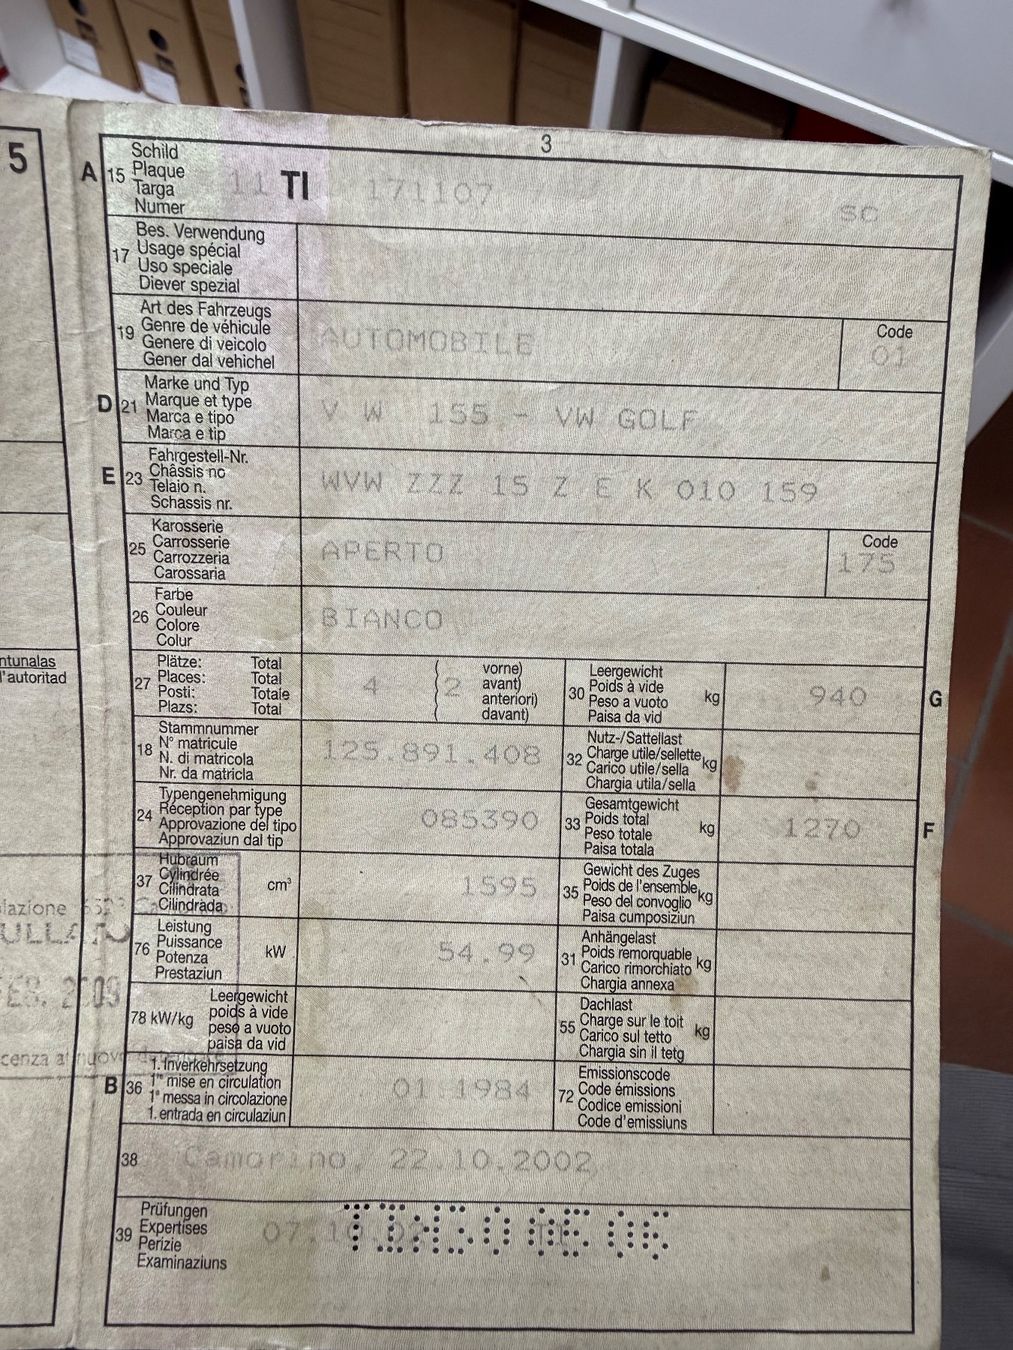 5
3
A 15 Schild
Plaque
Targa
Numer
11 TI 171107 SC
17 Bes. Verwendung
Usage spécial
Uso speciale
Diever spezial
19 Art des Fahrzeugs
Genre de véhicule
Genere di veicolo
Gener dal vehichel
AUTOMOBILE
Code
01
D 21 Marke und Typ
Marque et type
Marca e tipo
Marca e tip
V W 155 - VW GOLF
E 23 Fahrgestell-Nr.
Châssis no
Telaio n.
Schassis nr.
WVW ZZZ 15 Z E K 010 159
25 Karosserie
Carrosserie
Carrozzeria
Carossaria
APERTO
Code
175
26 Farbe
Couleur
Colore
Colur
BIANCO
ntunalas
l'autoritad
27 Plätze: Total
Places: Total
Posti: Totale
Plazs: Total
4 ( 2 vorne)
( avant)
( anteriori)
( davant)
30 Leergewicht
Poids à vide kg
Peso a vuoto
Paisa da vid
940
G
18 Stammnummer
N° matricule
N. di matricola
Nr. da matricla
125.891.408
32 Nutz-/Sattellast
Charge utile/sellette kg
Carico utile/sella
Chargia utila/sella
24 Typengenehmigung
Réception par type
Approvazione del tipo
Approvaziun dal tip
085390
33 Gesamtgewicht
Poids total kg
Peso totale
Paisa totala
1270
F
37 Hubraum
Cylindrée cm³
Cilindrata
Cilindrada
1595
35 Gewicht des Zuges
Poids de l'ensemble kg
Peso del convoglio
Paisa cumposiziun
76 Leistung
Puissance kW
Potenza
Prestaziun
54.99
31 Anhängelast
Poids remorquable kg
Carico rimorchiato
Chargia annexa
78 kW/kg Leergewicht
poids à vide
peso a vuoto
paisa da vid
55 Dachlast
Charge sur le toit kg
Carico sul tetto
Chargia sin il tetg
B 36 1. Inverkehrsetzung
1re mise en circulation
1a messa in circolazione
1. entrada en circulaziun
01.1984
72 Emissionscode
Code émissions
Codice emissioni
Code d'emissiuns
38 Camorino, 22.10.2002
39 Prüfungen
Expertises
Perizie
Examinaziuns
07.10.02